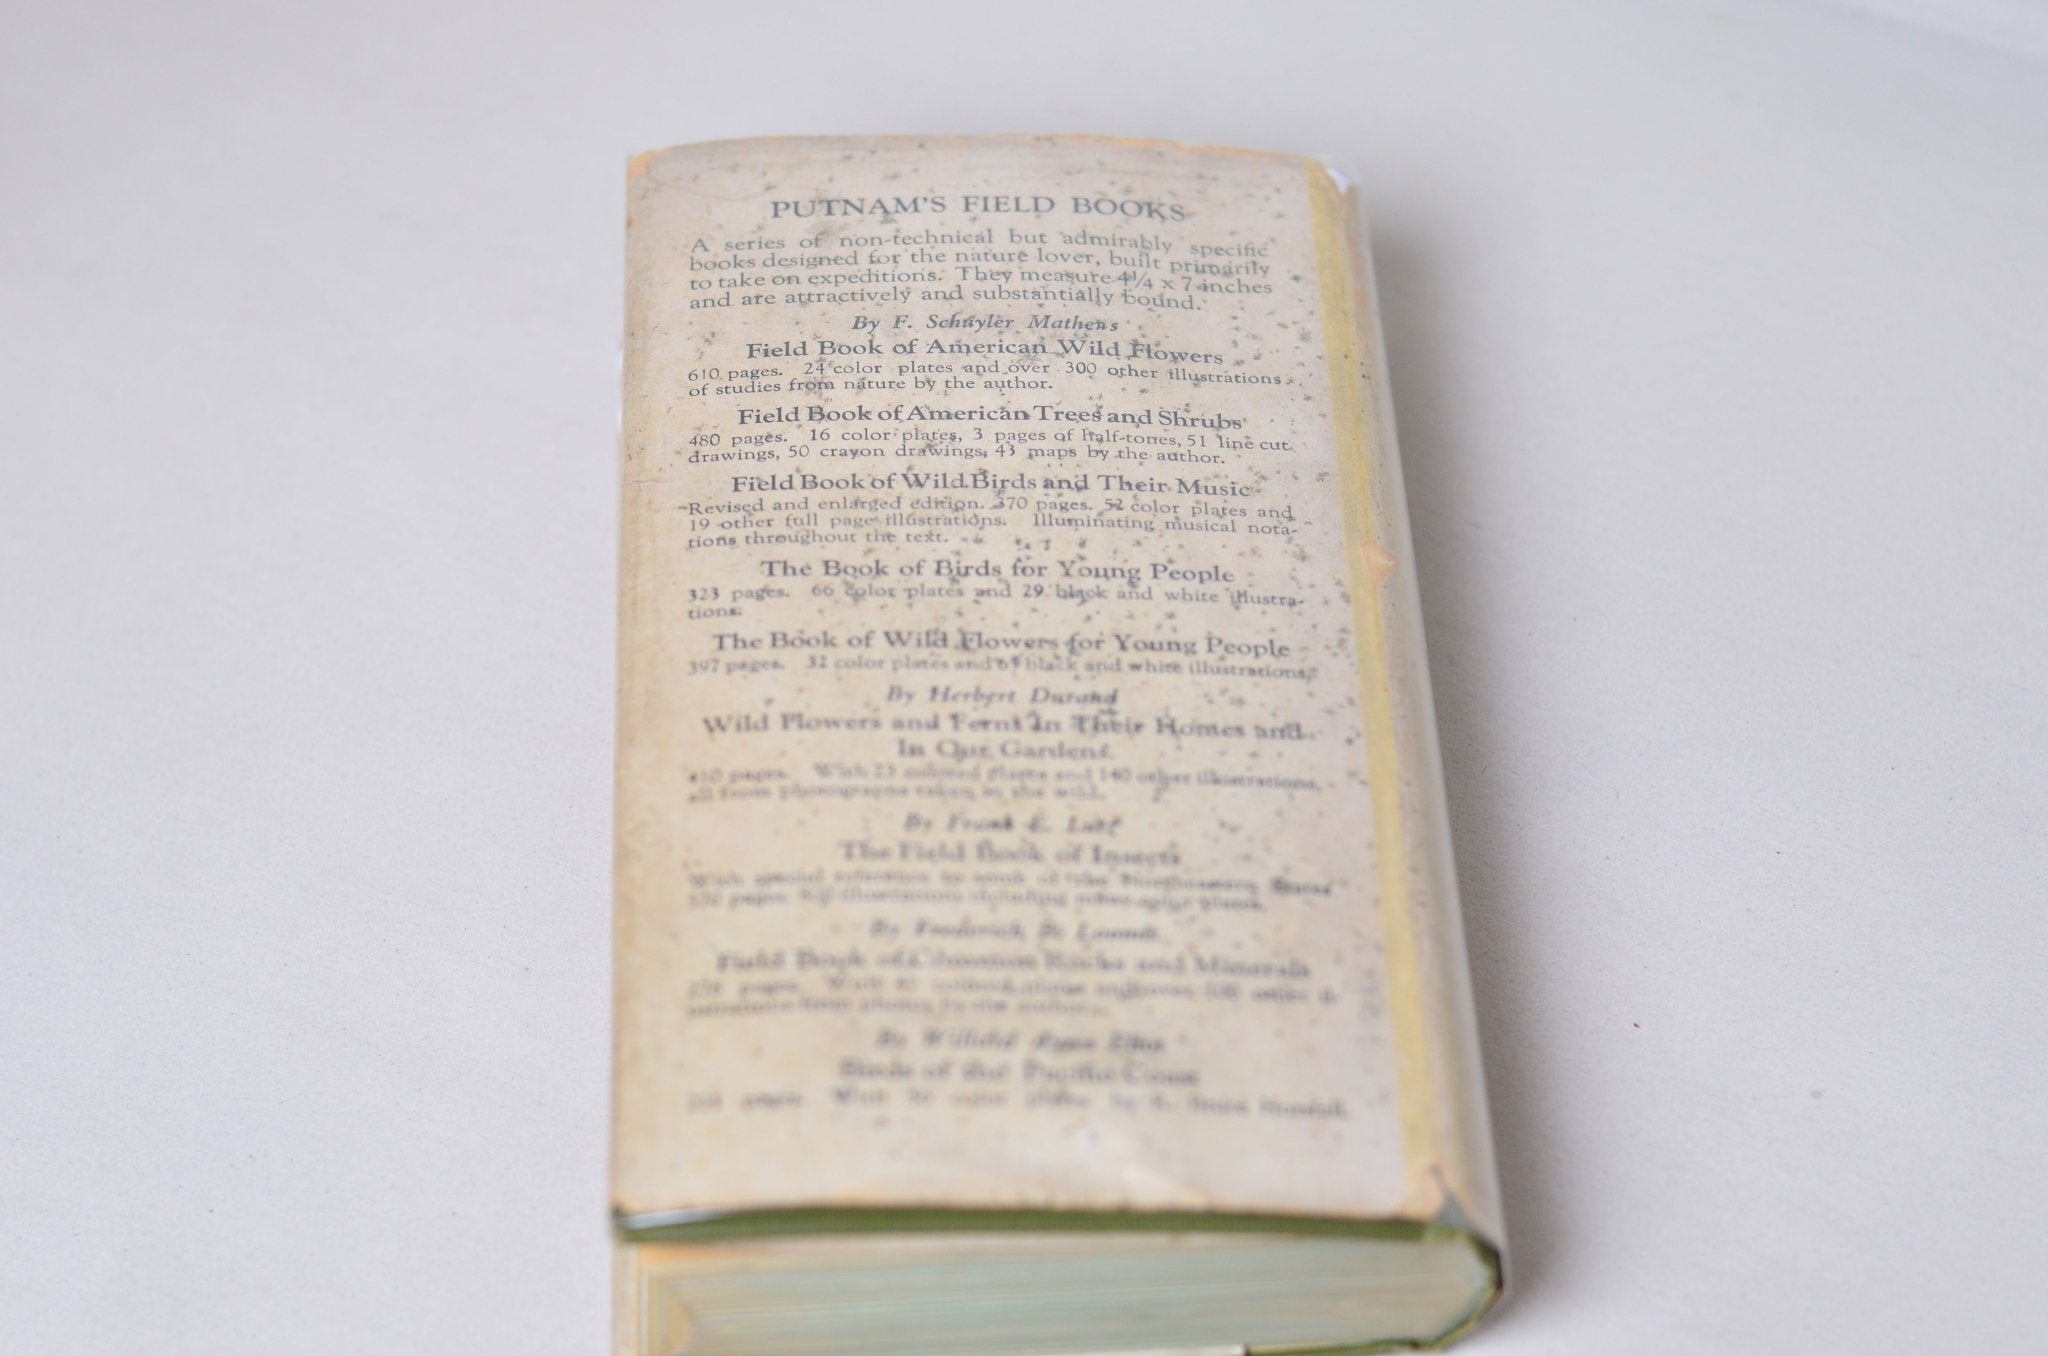 PUTNAM'S FIELD BOOKS
A series of non-technical but admirably specific
books designed for the nature lover, built primarily
to take on expeditions. They measure 4¼ x 7 inches
and are attractively and substantially bound.
By F. Schuyler Mathews
Field Book of American Wild Flowers
610 pages. 24 color plates and over 300 other illustrations
of studies from nature by the author.
Field Book of American Trees and Shrubs
480 pages. 16 color plates, 3 pages of half-tones, 51 line cut
drawings, 50 crayon drawings, 43 maps by the author.
Field Book of Wild Birds and Their Music
Revised and enlarged edition. 370 pages. 52 color plates and
19 other full page illustrations. Illuminating musical nota-
tions throughout the text.
The Book of Birds for Young People
323 pages. 66 color plates and 29 black and white illustra-
tions.
The Book of Wild Flowers for Young People
397 pages. 32 color plates and black and white illustrations.
By Herbert Durand
Wild Flowers and Ferns In Their Homes and
In Our Gardens
pages. With 23 colored plates and 140 other illustrations,
all from photographs taken in the wild.
By Frank E. Lutz
The Field Book of Insects
With special reference to some of the Northeastern States
pages. illustrations including many color plates.
By Frederick B. Loomis
Field Book of Common Rocks and Minerals
pages. With colored plates and over 100 other
from photos by the author.
By Willard Ayres Eliot
Birds of the Pacific Coast
pages. With color plates by R. Bruce Horsfall.